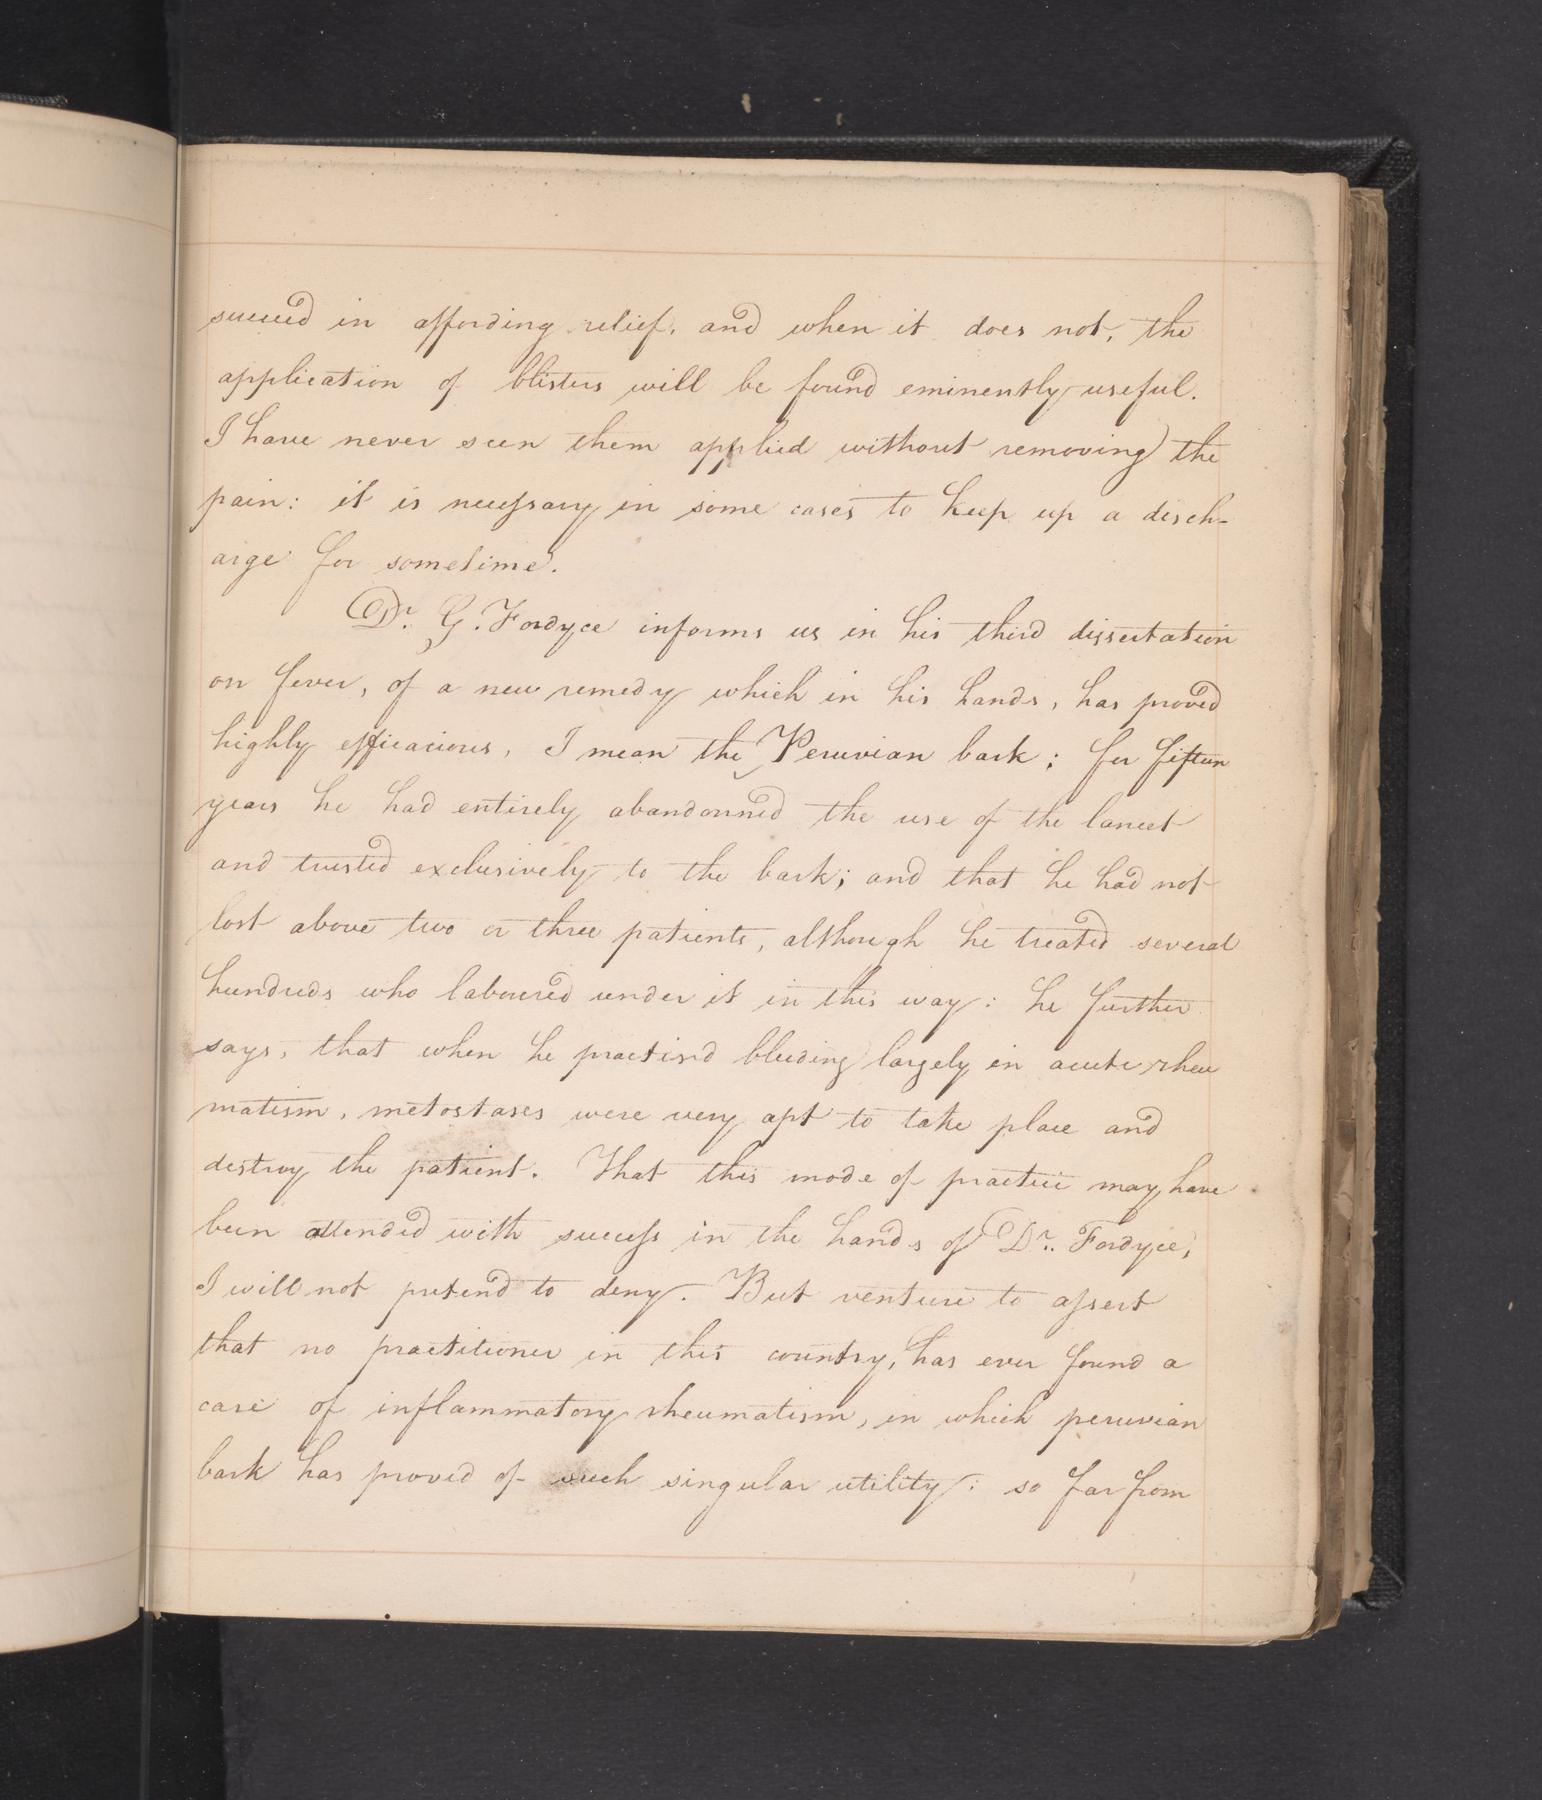 succeed in affording relief, and when it does not, the
application of blisters will be found eminently useful.
I have never seen them applied without removing the
pain: it is necessary in some cases to keep up a disch-
arge for sometime.
Dr. G. Fordyce informs us in his third dissertation
on fever, of a new remedy which in his hands, has proved
highly efficacious, I mean the Peruvian bark; for fifteen
years he had entirely abandonned the use of the lancet
and trusted exclusively to the bark; and that he had not
lost above two or three patients, although he treated several
hundreds who laboured under it in this way: he further
says, that when he practis'd bleeding largely in acute rheu
matism, metostases were very apt to take place and
destroy the patient. That this mode of practice may have
been attended with success in the hands of Dr. Fordyce,
I will not pretend to deny. But venture to assert
that no practitioner in this country, has ever found a
case of inflammatory rheumatism, in which peruvian
bark has proved of such singular utility: so far from